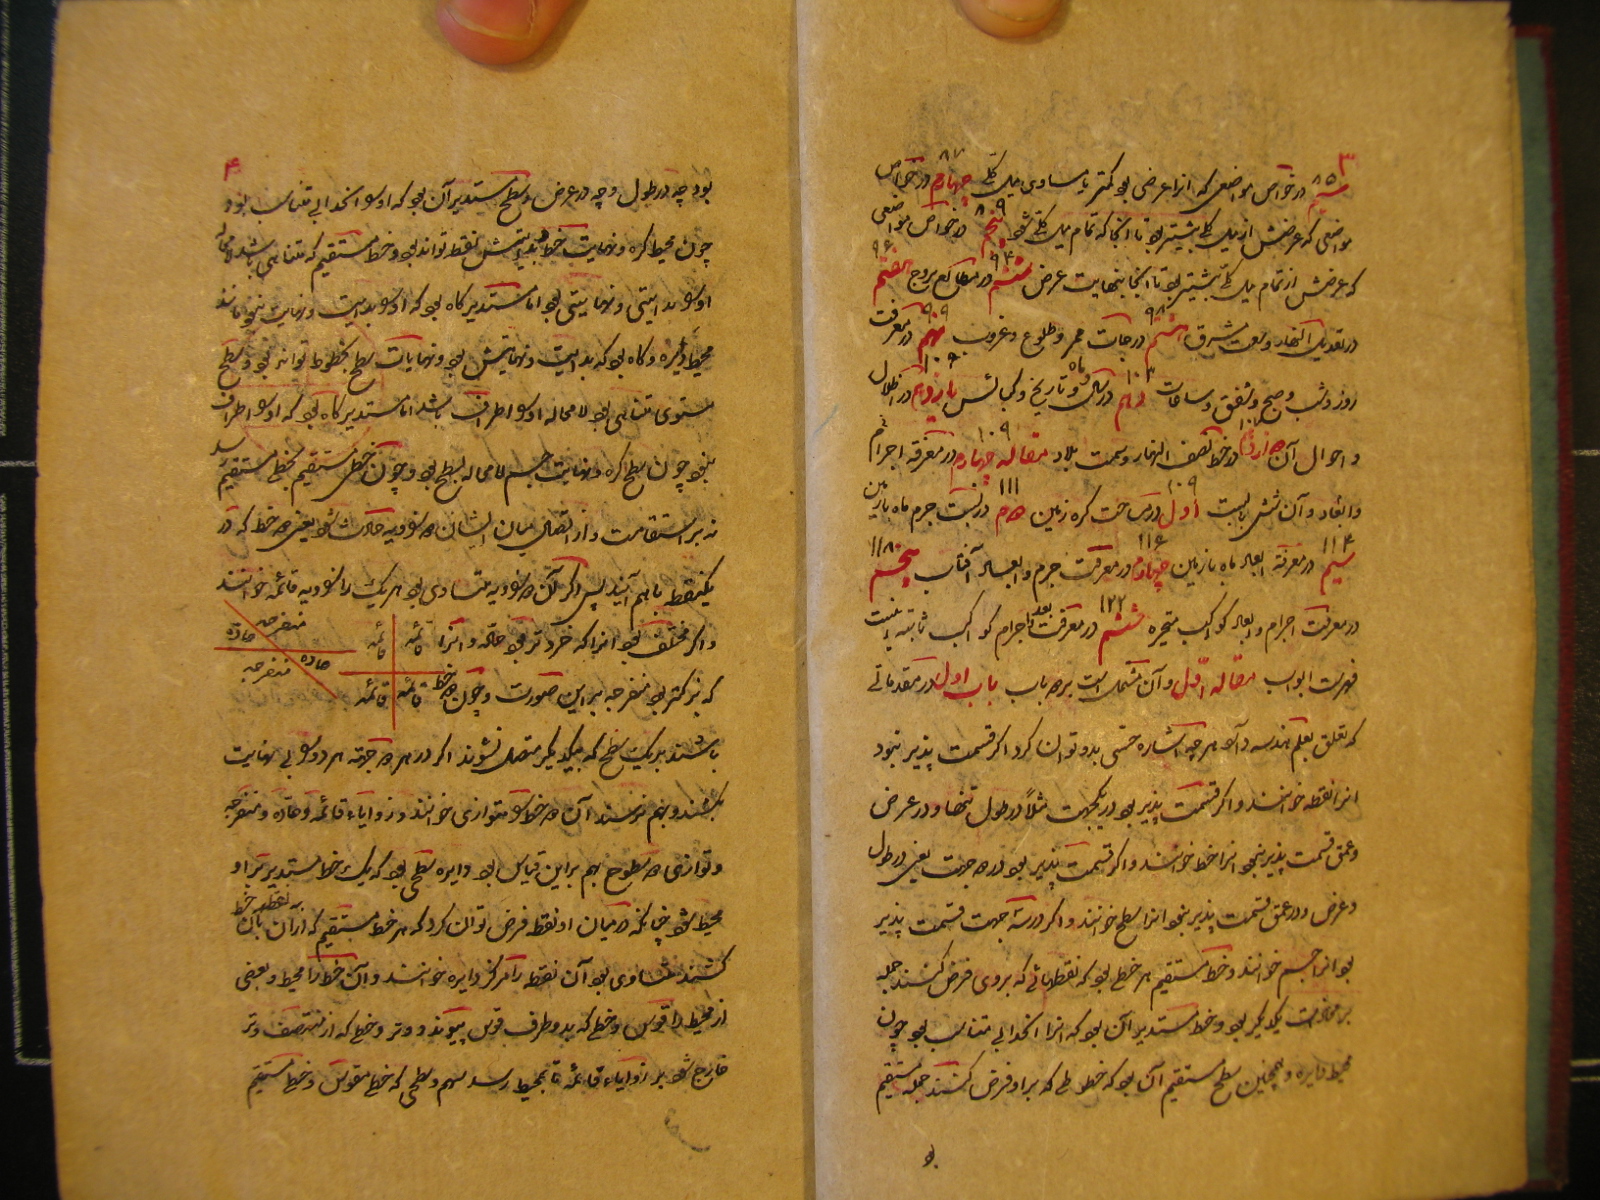 ۳
سیم ۸۵ در خواص مواضعی که انرا عرضی بود کمتر یا مساوی میل کلی چهارم ۸۷ در خواص
مواضعی که عرضش از میل کلی بیشتر بود تا انجا که تمام میل کلی شود پنجم ۸۹ در خواص مواضعی
که عرضش از تمام میل کلی بیشتر بود تا انجا بنهایت عرض ششم ۹۴ در مطالع بروج هفتم ۹۶
در تعدیل النهار و سعت مشرق هشتم ۹۸ در درجات ممر و طلوع و غروب نهم ۹۹ در معرفت
روز و شب و صبح و شفق و ساعات دهم در سال و ماه و تاریخ و کبائس یازدهم در اظلال
و احوال آن در خط نصف النهار و سمت بلاد مقاله چهارم ۱۰۹ در معرفة اجرام
و ابعاد و آن شش بابست اول ۱۰۹ در مساحت کره زمین دوم ۱۱۱ در نسبت جرم ماه با زمین
سیم ۱۱۴ در معرفة ابعاد ماه با زمین چهارم ۱۱۶ در معرفت جرم و ابعاد آفتاب پنجم ۱۱۸
در معرفت اجرام و ابعاد کواکب متحیره ششم ۱۲۲ در معرفت بعد و اجرام کواکب ثابته اینست
فهرست ابواب مقاله اول و آن مشتمل است بر دو باب باب اول در مقدماتی
که تعلق بعلم هندسه دارد هر چه اشاره حسی بدو توان کرد اگر قسمت پذیر نبود
انرا نقطه خوانند و اگر قسمت پذیر بود در یکجهت مثلاً در طول تنها و در عرض
و عمق قسمت پذیر نبود انرا خط خوانند و اگر قسمت پذیر بود در دو جهت یعنی در طول
و عرض و در عمق قسمت پذیر نبود انرا سطح خوانند و اگر در سه جهت قسمت پذیر
بود انرا جسم خوانند و خط مستقیم هر خطی بود که نقطهائی که بر وی فرض کنند جمله
بر محاذات یکدیگر بود و خط مستدیر آن بود که انرا انحدابی متناسب بود چون
محیط دایره و همچنین سطح مستقیم آن بود که خطوطی که بر او فرض کنند جمله مستقیم
بود
۴
بود چه در طول و چه در عرض و سطح مستدیر آن بود که او را انحدابی متناسب بود
چون محیط کره و نهایت خط نقطه تواند بود و خط مستقیم که متناهی باشد لامحاله
او را بدایتی و نهایتی بود اما مستدیر گاه بود که او را بدایت و نهایت نبود مانند
محیط دایره و گاه بود که بدایت و نهایتش بود و نهایات سطح بخطوط تواند بود و سطح
مستوی متناهی بود لامحاله او را اطراف باشد اما مستدیر گاه بود که او را اطراف
نبود چون سطح کره و نهایت جسم لامحاله بسطح بود و چون خطی مستقیم بخطی مستقیم رسد
نه بر استقامت و از اتصال میان ایشان دو زاویه حادث شود یعنی دو خط که در
یکنقطه باهم آیند پس اگر آن دو زاویه متساوی بود هر یک را زاویه قائمه خوانند
و اگر مختلف بود انرا که خردتر بود حاده و انرا
که بزرگتر بود منفرجه بر این صورت و چون دو خط
قائمه قائمه
قائمه قائمه
منفرجه حاده
حاده منفرجه
باشند بر یک سطح که بیکدیگر متصل نشوند اگر در هر دو جهة هر دو را بی نهایت
بکشند و بهم نرسند آن دو خط را متوازی خوانند و زوایاء قائمه و حاده و منفرجه
و توازی در سطوح هم بر این قیاس بود دایره سطحی بود که یک خط مستدیر بر او
محیط شود چنانکه در میان او نقطه فرض توان کرد که هر خط مستقیم که از آن نقطه بان خط
کشند متساوی بود آن نقطه را مرکز دایره خوانند و آن خط را محیط و بعضی
از محیط را قوس و خطی که بدو طرف قوس پیوندد وتر و خطی که از منتصف وتر
خارج شود بر زوایاء قائمه تا بمحیط رسد سهم و سطحی که خط مقوس و خط مستقیم